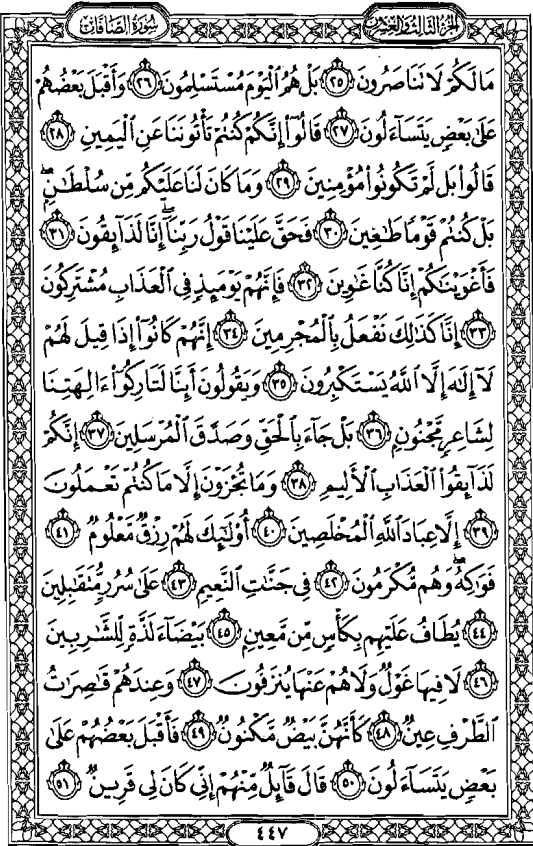 الجزء الثالث والعشرون
سورة الصافات
مَا لَكُمْ لَا تَنَاصَرُونَ ٢٥ بَلْ هُمُ الْيَوْمَ مُسْتَسْلِمُونَ ٢٦ وَأَقْبَلَ بَعْضُهُمْ
عَلَىٰ بَعْضٍ يَتَسَاءَلُونَ ٢٧ قَالُوا إِنَّكُمْ كُنتُمْ تَأْتُونَنَا عَنِ الْيَمِينِ ٢٨
قَالُوا بَل لَّمْ تَكُونُوا مُؤْمِنِينَ ٢٩ وَمَا كَانَ لَنَا عَلَيْكُم مِّن سُلْطَٰنٍۭ ۖ
بَلْ كُنتُمْ قَوْمًا طَٰغِينَ ٣٠ فَحَقَّ عَلَيْنَا قَوْلُ رَبِّنَا ۖ إِنَّا لَذَائِقُونَ ٣١
فَأَغْوَيْنَٰكُمْ إِنَّا كُنَّا غَٰوِينَ ٣٢ فَإِنَّهُمْ يَوْمَئِذٍ فِي الْعَذَابِ مُشْتَرِكُونَ
٣٣ إِنَّا كَذَٰلِكَ نَفْعَلُ بِالْمُجْرِمِينَ ٣٤ إِنَّهُمْ كَانُوا إِذَا قِيلَ لَهُمْ
لَا إِلَٰهَ إِلَّا اللَّهُ يَسْتَكْبِرُونَ ٣٥ وَيَقُولُونَ أَئِنَّا لَتَارِكُوا ءَالِهَتِنَا
لِشَاعِرٍ مَّجْنُونٍۭ ٣٦ بَلْ جَاءَ بِالْحَقِّ وَصَدَّقَ الْمُرْسَلِينَ ٣٧ إِنَّكُمْ
لَذَائِقُوا الْعَذَابِ الْأَلِيمِ ٣٨ وَمَا تُجْزَوْنَ إِلَّا مَا كُنتُمْ تَعْمَلُونَ
٣٩ إِلَّا عِبَادَ اللَّهِ الْمُخْلَصِينَ ٤٠ أُولَٰئِكَ لَهُمْ رِزْقٌ مَّعْلُومٌ ٤١
فَوَٰكِهُ ۖ وَهُم مُّكْرَمُونَ ٤٢ فِي جَنَّٰتِ النَّعِيمِ ٤٣ عَلَىٰ سُرُرٍ مُّتَقَٰبِلِينَ
٤٤ يُطَافُ عَلَيْهِم بِكَأْسٍ مِّن مَّعِينٍۭ ٤٥ بَيْضَاءَ لَذَّةٍ لِّلشَّٰرِبِينَ
٤٦ لَا فِيهَا غَوْلٌ وَلَا هُمْ عَنْهَا يُنزَفُونَ ٤٧ وَعِندَهُمْ قَٰصِرَٰتُ
الطَّرْفِ عِينٌ ٤٨ كَأَنَّهُنَّ بَيْضٌ مَّكْنُونٌ ٤٩ فَأَقْبَلَ بَعْضُهُمْ عَلَىٰ
بَعْضٍ يَتَسَاءَلُونَ ٥٠ قَالَ قَائِلٌ مِّنْهُمْ إِنِّي كَانَ لِي قَرِينٌ ٥١
٤٤٧